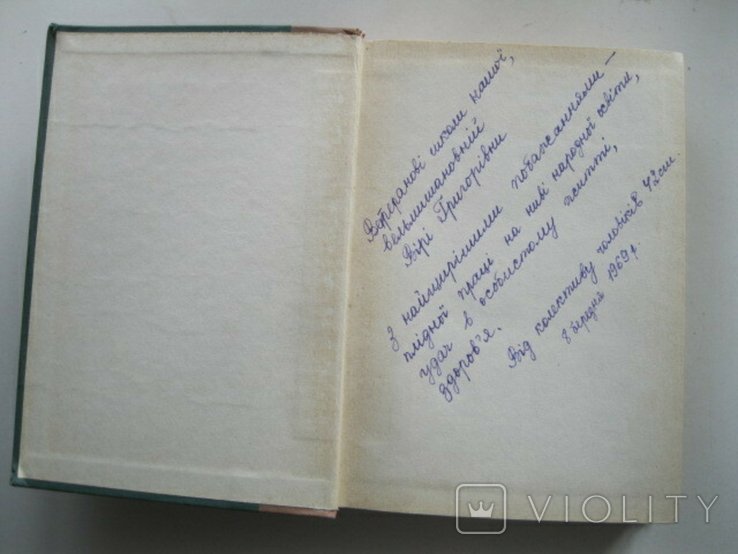 Ветеранові школи нашої,
вельмишановній
Вірі Григорівни
З найщирішими побажаннями —
плідної праці на ниві народної освіти,
удач в особистому житті,
здоров'я.
Від колективу чоловіків 42 сш.
8 березня 1969 р.
VIOLITY